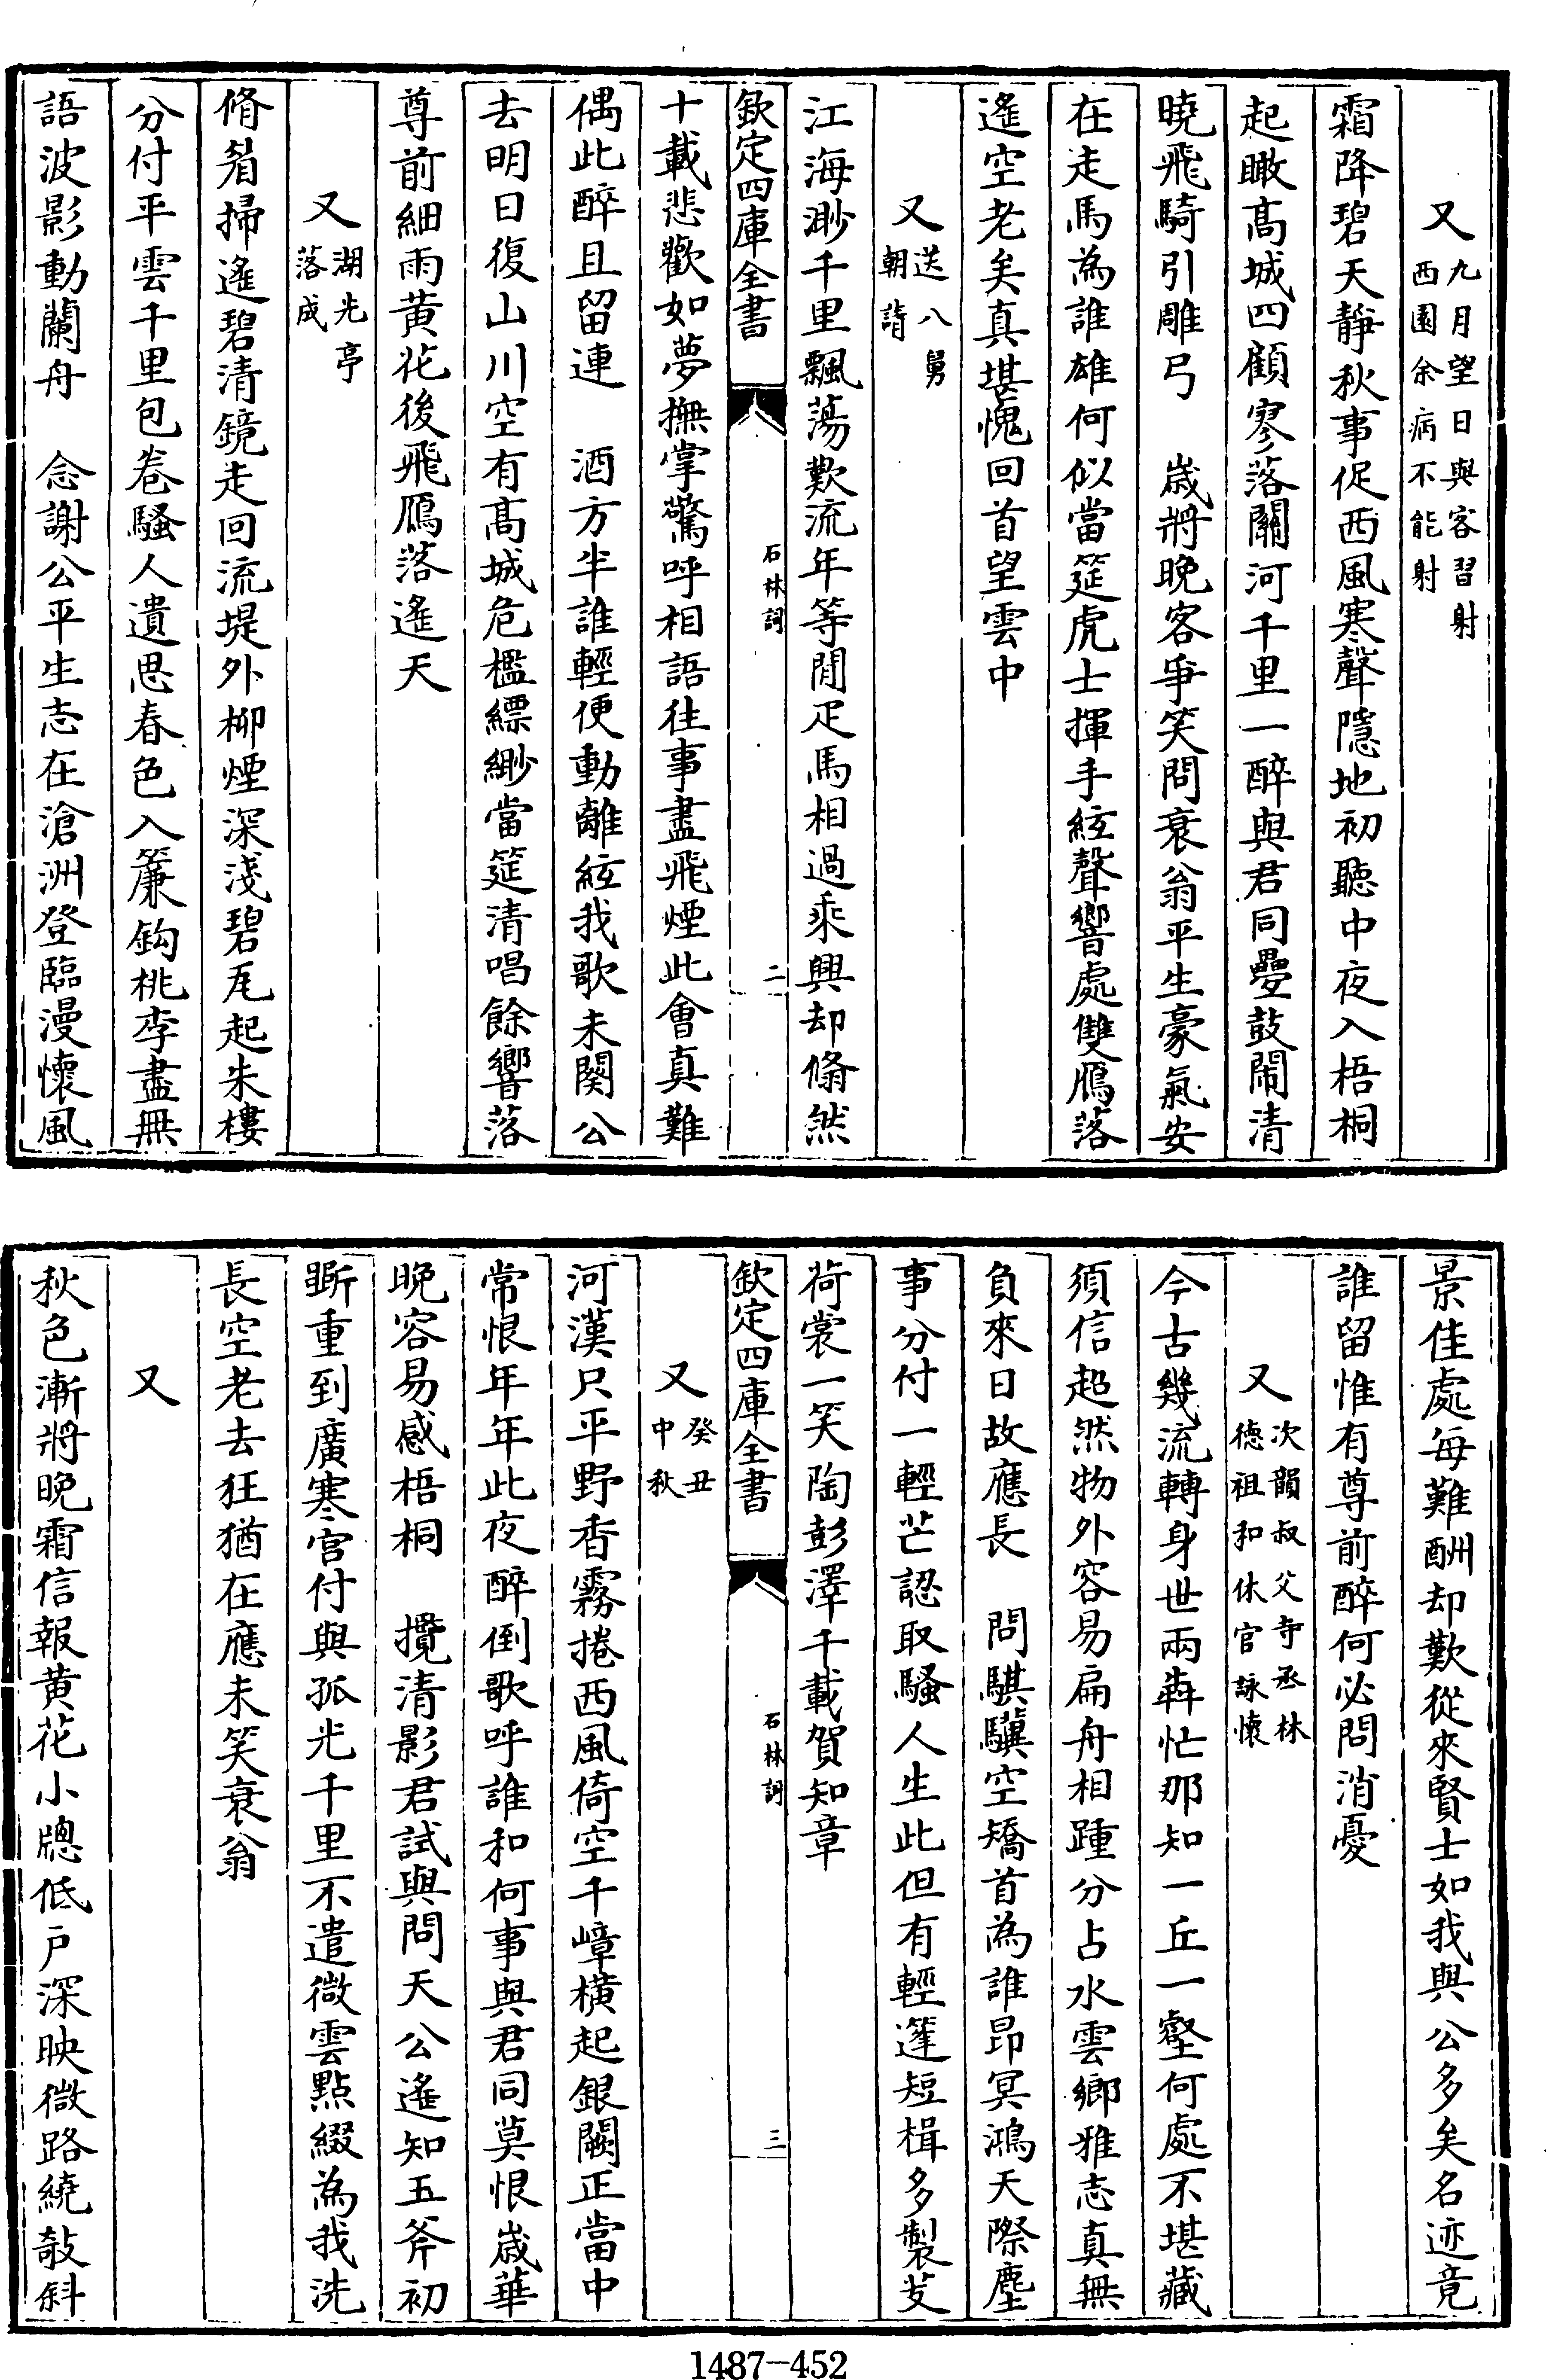 又九月望日與客習射西園余病不能射
霜降碧天靜秋事促西風寒聲隱地初聽中夜入梧桐
起瞰髙城四顧寥落闗河千里一醉與君同疊鼓鬧清
曉飛騎引雕弓　歲將晚客爭笑問衰翁平生豪氣安
在走馬為誰雄何似當筵虎士揮手絃聲響處雙鴈落
遙空老矣真堪愧回首望雲中
又送八舅朝請
江海渺千里飄蕩歎流年等閒疋馬相過乘興却翛然
欽定四庫全書
石林詞
二
十載悲歡如夢撫掌驚呼相語往事盡飛煙此會真難
偶此醉且留連　酒方半誰輕便動離絃我歌未闋公
去明日復山川空有髙城危檻縹緲當筵清唱餘響落
尊前細雨黄花後飛鴈落遙天
又湖光亭落成
脩眉掃遙碧清鏡走回流堤外栁煙深淺碧瓦起朱樓
分付平雲千里包卷騷人遺思春色入簾鈎桃李盡無
語波影動蘭舟　念謝公平生志在滄洲登臨漫懷風
景佳處每難酬却歎從來賢士如我與公多矣名迹竟
誰留惟有尊前醉何必問消憂
又次韻叔父寺丞林德祖和休官詠懷
今古幾流轉身世兩犇忙那知一丘一壑何處不堪藏
須信超然物外容易扁舟相踵分占水雲鄉雅志真無
負來日故應長　問騏驥空矯首為誰昂冥鴻天際塵
事分付一輕芒認取騷人生此但有輕篷短楫多製芰
荷裳一笑陶彭澤千載賀知章
欽定四庫全書
石林詞
三
又癸丑中秋
河漢只平野香霧捲西風倚空千嶂橫起銀闕正當中
常恨年年此夜醉倒歌呼誰和何事與君同莫恨歲華
晚容易感梧桐　攬清影君試與問天公遙知五斧初
斲重到廣寒宫付與孤光千里不遣微雲點綴為我洗
長空老去狂猶在應未笑衰翁
又
秋色漸將晚霜信報黄花小牕低户深映微路繞敧斜
1487-452